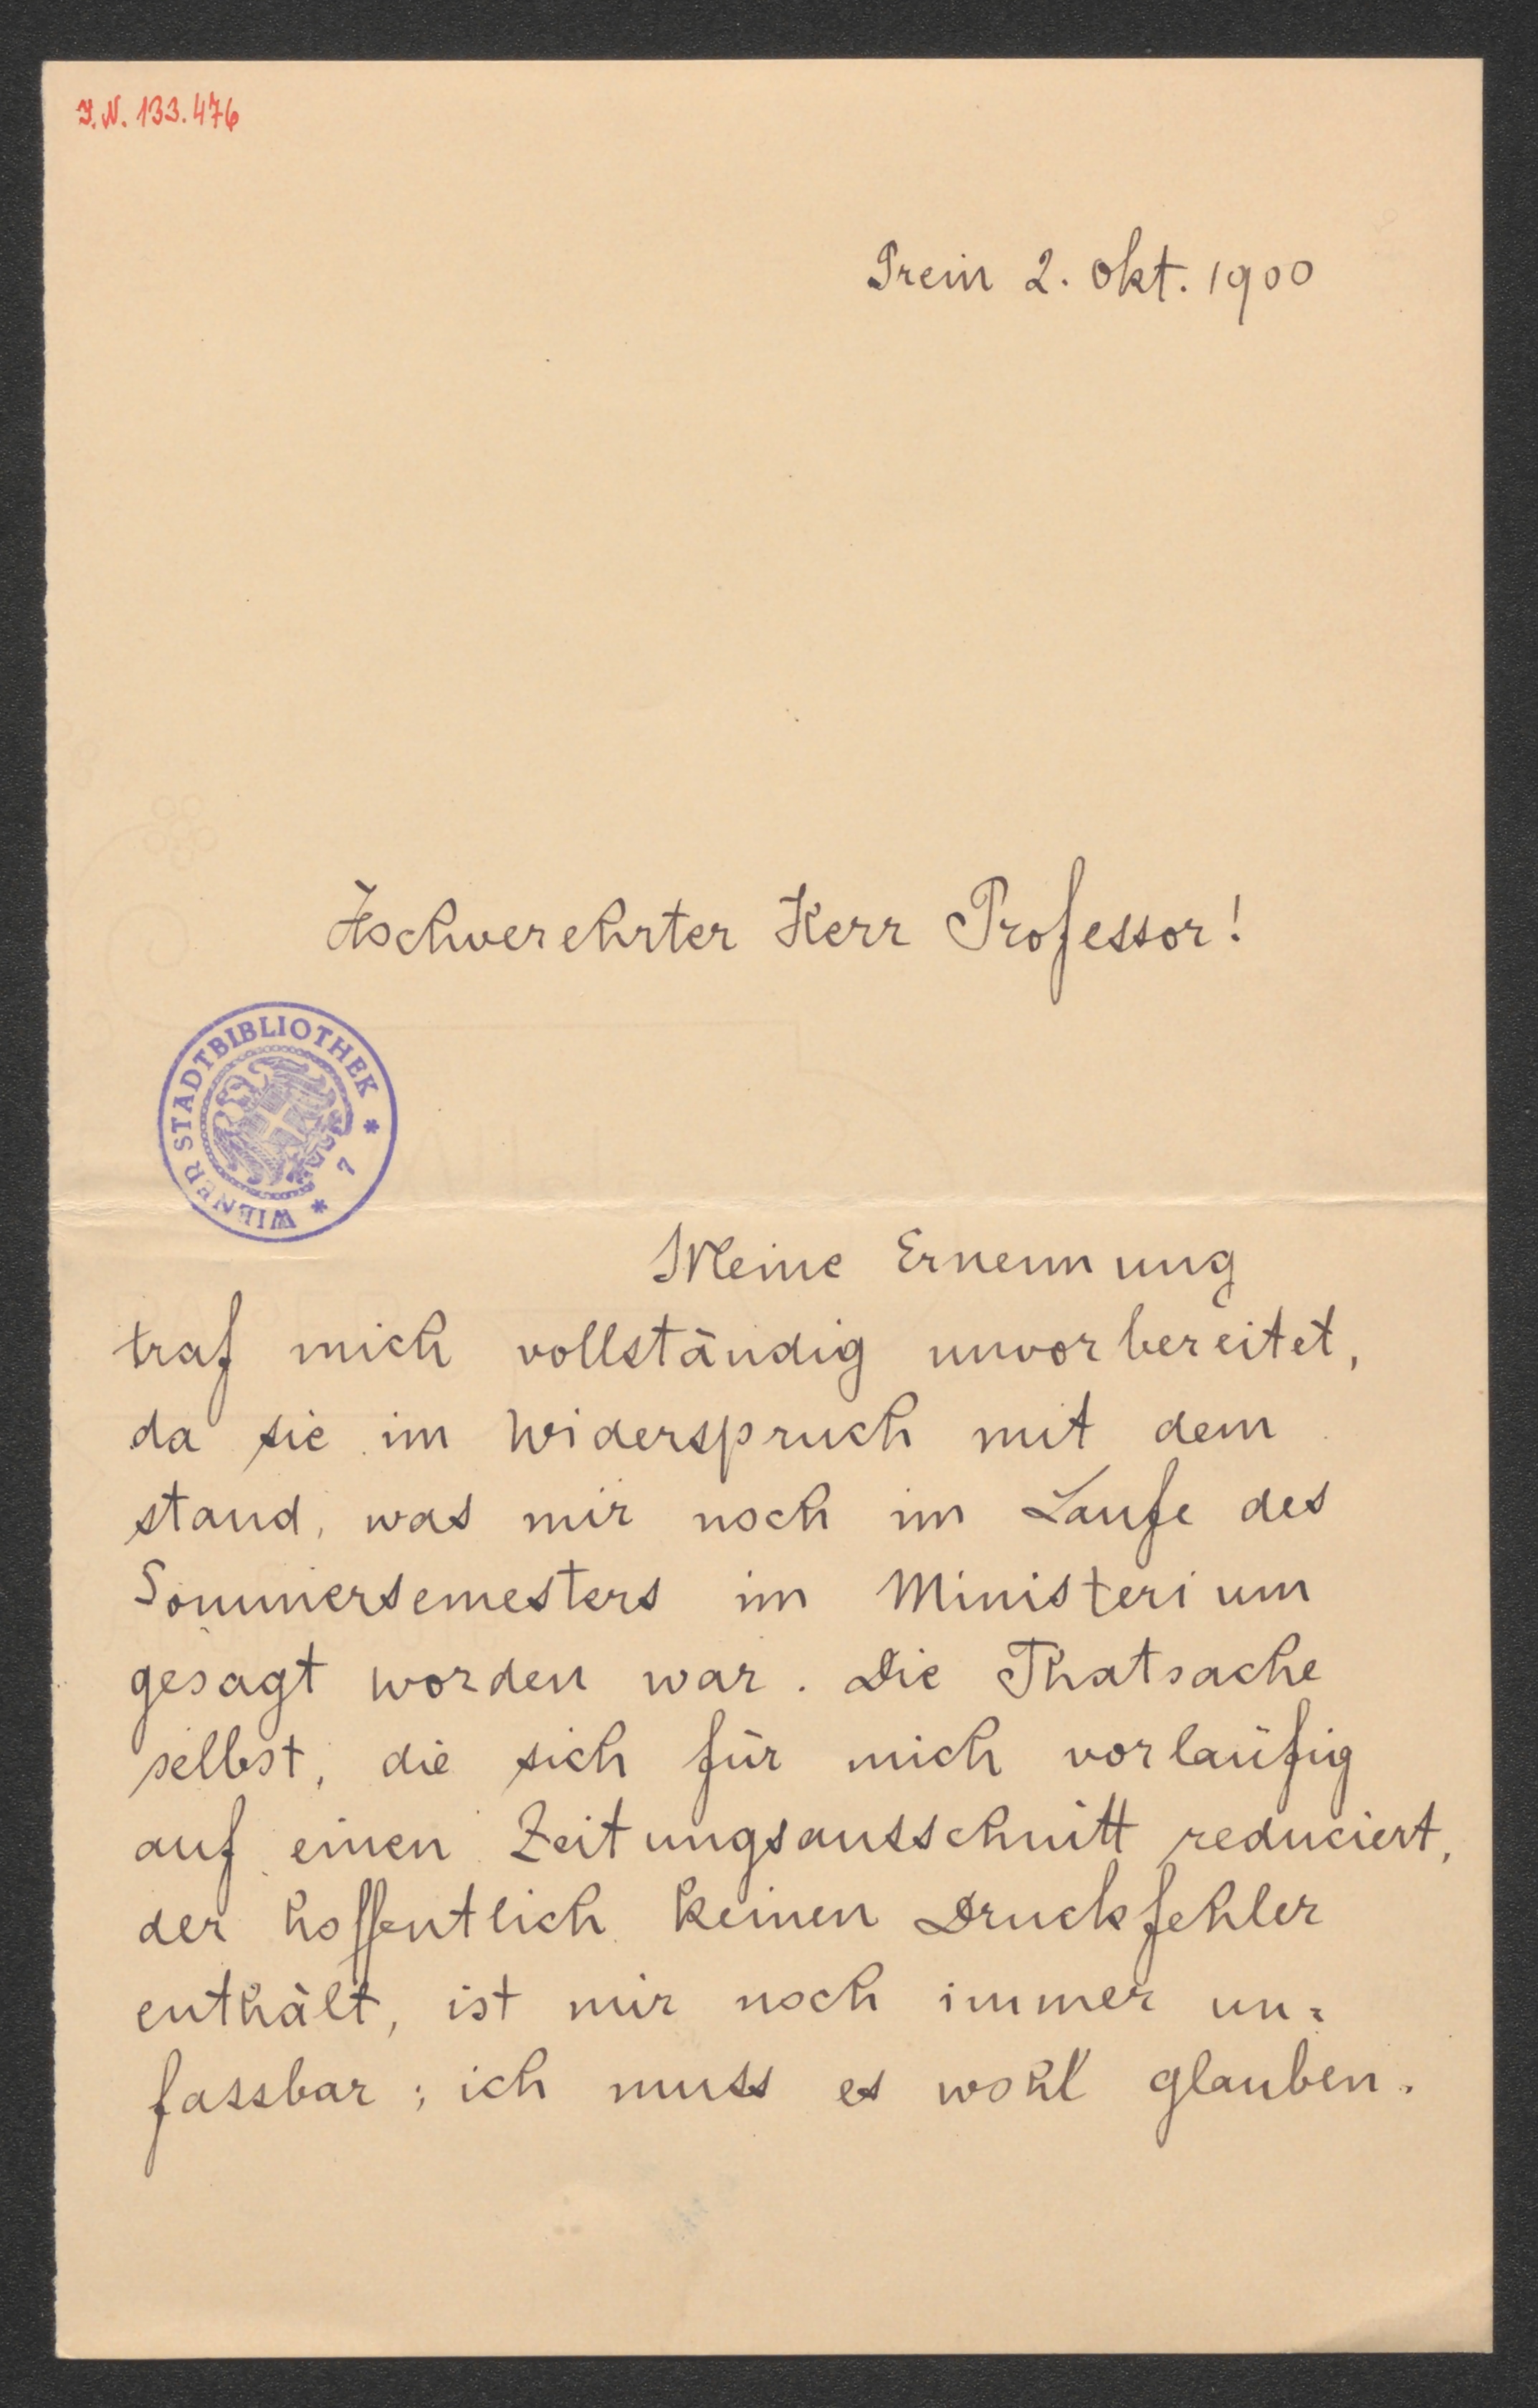 I.N. 133.476
Prein 2. Okt. 1900
Hochverehrter Herr Professor!
WIENER STADTBIBLIOTHEK * 7 *
Meine Ernennung
traf mich vollständig unvorbereitet,
da sie im Widerspruch mit dem
stand, was mir noch im Laufe des
Sommersemesters im Ministerium
gesagt worden war. Die Thatsache
selbst, die sich für mich vorläufig
auf einen Zeitungsausschnitt reduciert,
der hoffentlich keinen Druckfehler
enthält, ist mir noch immer un=
fassbar; ich muss es wohl glauben.